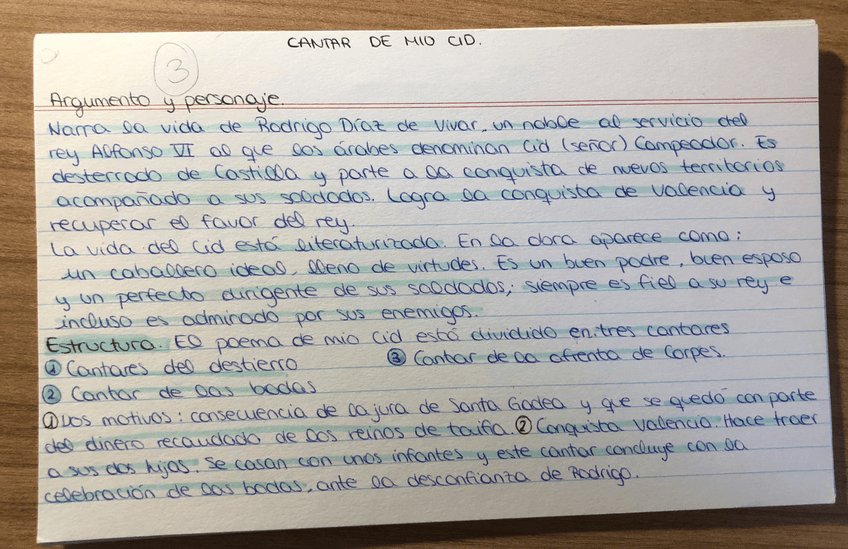 CANTAR DE MIO CID.
3
Argumento y personaje.
Narra la vida de Rodrigo Díaz de Vivar, un noble al servicio del
rey Alfonso VI al que los árabes denominan Cid (señor) Campeador. Es
desterrado de Castilla y parte a la conquista de nuevos territorios
acompañado a sus soldados. Logra la conquista de Valencia y
recuperar el favor del rey.
La vida del Cid está literaturizada. En la obra aparece como:
un caballero ideal, lleno de virtudes. Es un buen padre, buen esposo
y un perfecto dirigente de sus soldados; siempre es fiel a su rey e
incluso es admirado por sus enemigos.
Estructura. El poema de mio Cid está dividido en: tres cantares
① Cantares del destierro ③ Cantar de la afrenta de Corpes.
② Cantar de las bodas
① Los motivos: consecuencia de la jura de Santa Gadea y que se quedó con parte
del dinero recaudado de los reinos de taifa ② Conquista Valencia. Hace traer
a sus dos hijas. Se casan con unos infantes y este cantar concluye con la
celebración de las bodas, ante la desconfianza de Rodrigo.